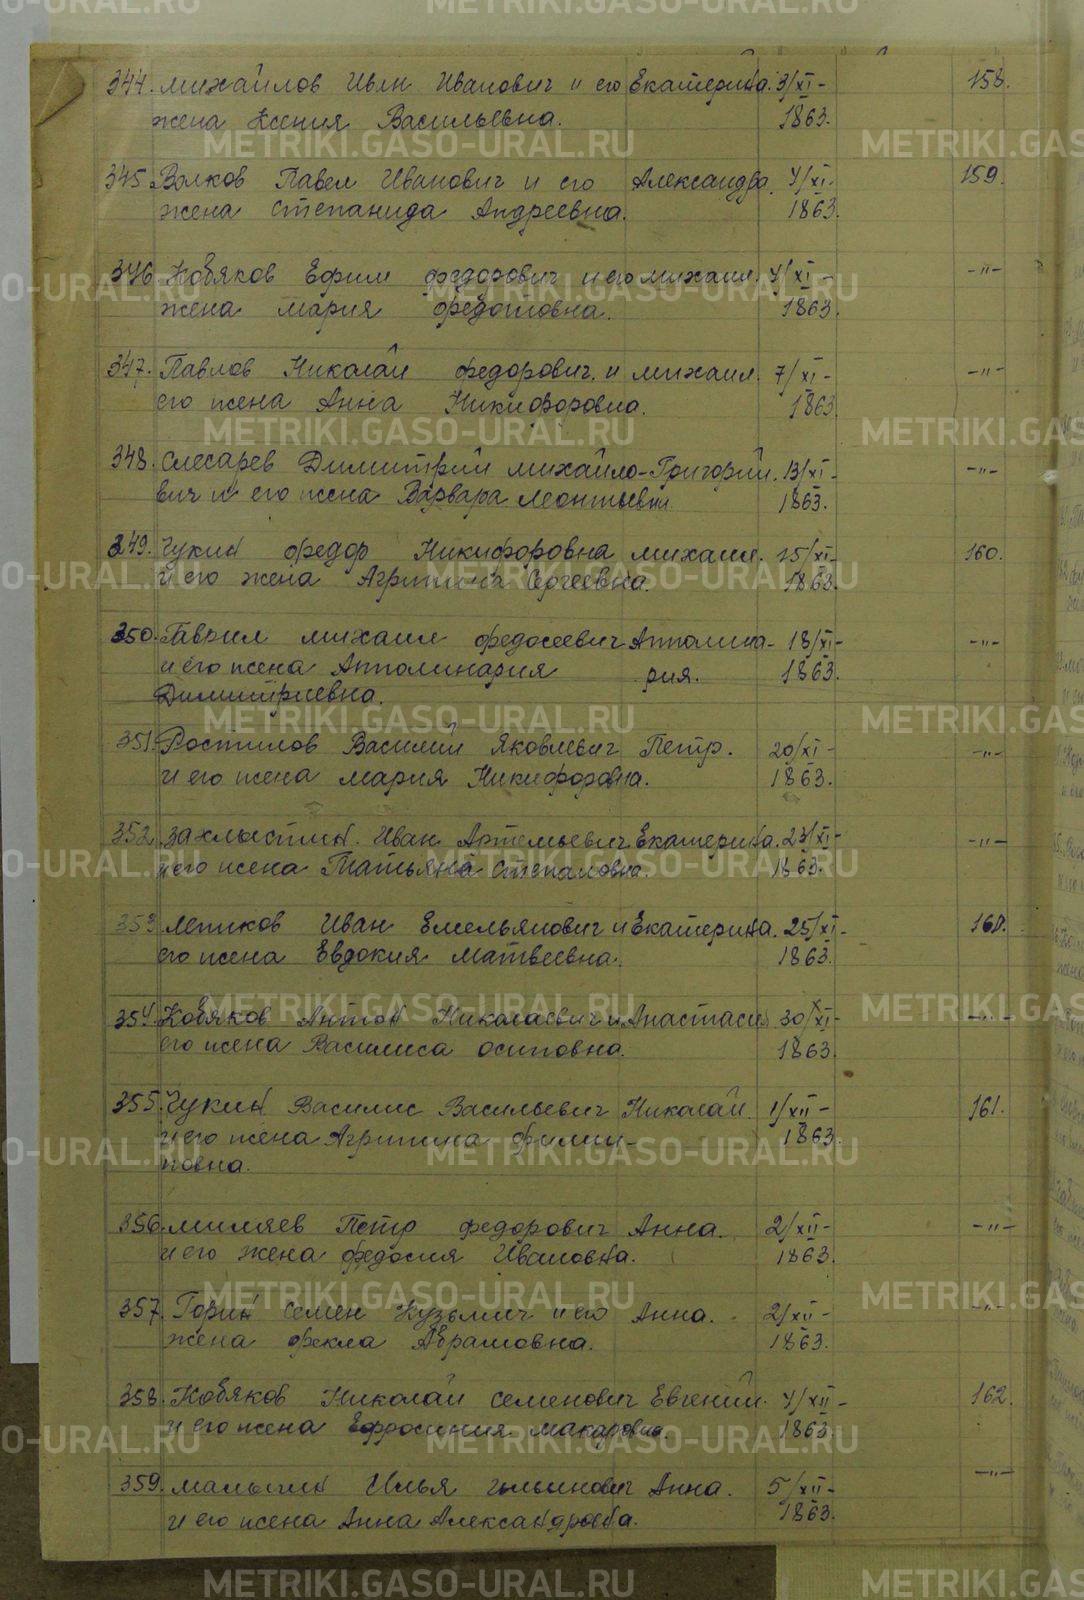 METRIKI.GASO-URAL.RU
344. Михайлов Иван Иванович и его Екатерина. 3/XI- 158.
жена Ксения Васильевна. 1863.
345. Волков Павел Иванович и его Александра. 4/XI- 159.
жена Степанида Андреевна. 1863.
346. Кобяков Ефим Федорович и его Михаил. 4/XI- -"-
жена Мария Федотовна. 1863.
347. Павлов Николай Федорович и Михаил. 7/XI- -"-
его жена Анна Никифоровна. 1863.
348. Слесарев Димитрий Михайло- Григорий. 13/XI- -"-
вич и его жена Варвара Леонтьевна 1863.
349. Чукин Федор Никифоровна Михаил. 15/XI- 160.
и его жена Агрипина Сергеевна. 1863.
350. Гаврил Михаил Федосеевич Апполина- 18/XI- -"-
и его жена Апполинария рия. 1863.
Димитриевна.
351. Ростилов Василий Яковлевич Петр. 20/XI- -"-
и его жена Мария Никифоровна. 1863.
352. Захлыстин Иван Артемьевич Екатерина. 23/XI- -"-
и его жена Татьяна Степановна. 1863.
353. Иван Емельянович и Екатерина. 25/XI- 160.
его жена Евдокия Матвеевна. 1863.
354. Кобяков Антон Николаевич и Анастаси 30/XI- -"-
его жена Василиса Осиповна. 1863.
355. Чукин Василис Васильевич Николай. 1/XII- 161.
и его жена Агрипина Филип- 1863.
повна.
356. Миляев Петр Федорович Анна. 2/XII- -"-
и его жена Федосия Ивановна. 1863.
357. Горин Семен Кузьмич и его Анна. 2/XII- -"-
жена Фекла Абрамовна. 1863.
358. Кобяков Николай Семенович Евгений. 4/XII- 162.
и его жена Ефросиния Макаровна. 1863.
359. Малыгин Илья Ильинович Анна. 5/XII- -"-
и его жена Анна Александровна. 1863.
METRIKI.GASO-URAL.RU